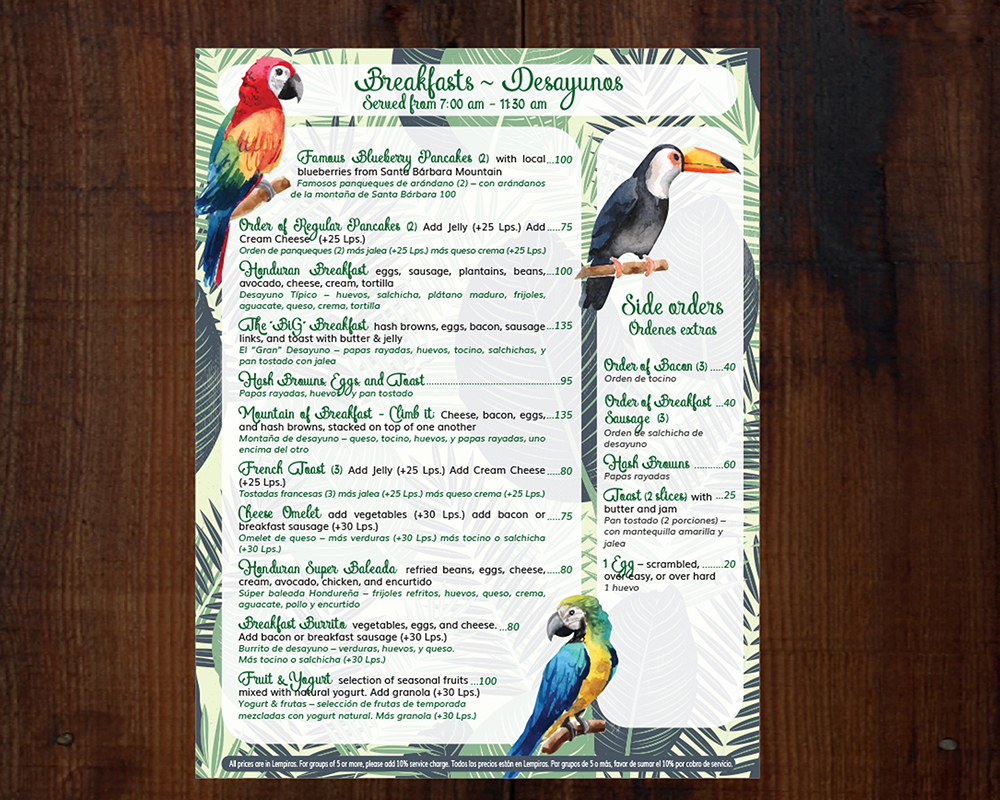 Breakfasts ~ Desayunos
Served from 7:00 am - 11:30 am
Famous Blueberry Pancakes (2) with local...100
blueberries from Santa Bárbara Mountain
Famosos panqueques de arándano (2) – con arándanos
de la montaña de Santa Bárbara 100
Order of Regular Pancakes (2) Add Jelly (+25 Lps.) Add.....75
Cream Cheese (+25 Lps.)
Orden de panqueques (2) más jalea (+25 Lps.) más queso crema (+25 Lps.)
Honduran Breakfast eggs, sausage, plantains, beans,...100
avocado, cheese, cream, tortilla
Desayuno Típico – huevos, salchicha, plátano maduro, frijoles,
aguacate, queso, crema, tortilla
The "BiG" Breakfast hash browns, eggs, bacon, sausage...135
links, and toast with butter & jelly
El "Gran" Desayuno – papas rayadas, huevos, tocino, salchichas, y
pan tostado con jalea
Hash Browns, Eggs, and Toast.............................................95
Papas rayadas, huevos y pan tostado
Mountain of Breakfast - Climb it: Cheese, bacon, eggs,...135
and hash browns, stacked on top of one another
Montaña de desayuno – queso, tocino, huevos, y papas rayadas, uno
encima del otro
French Toast (3) Add Jelly (+25 Lps.) Add Cream Cheese.....80
(+25 Lps.)
Tostadas francesas (3) más jalea (+25 Lps.) más queso crema (+25 Lps.)
Cheese Omelet add vegetables (+30 Lps.) add bacon or.....75
breakfast sausage (+30 Lps.)
Omelet de queso – más verduras (+30 Lps.) más tocino o salchicha
(+30 Lps.)
Honduran Super Baleada refried beans, eggs, cheese,.....80
cream, avocado, chicken, and encurtido
Súper baleada Hondureña – frijoles refritos, huevos, queso, crema,
aguacate, pollo y encurtido
Breakfast Burrito vegetables, eggs, and cheese. ...80
Add bacon or breakfast sausage (+30 Lps.)
Burrito de desayuno – verduras, huevos, y queso.
Más tocino o salchicha (+30 Lps.)
Fruit & Yogurt selection of seasonal fruits ...100
mixed with natural yogurt. Add granola (+30 Lps.)
Yogurt & frutas – selección de frutas de temporada
mezcladas con yogurt natural. Más granola (+30 Lps.)
Side orders
Ordenes extras
Order of Bacon (3) .....40
Orden de tocino
Order of Breakfast ...40
Sausage (3)
Orden de salchicha de
desayuno
Hash Browns ..........60
Papas rayadas
Toast (2 slices) with ...25
butter and jam
Pan tostado (2 porciones) –
con mantequilla amarilla y
jalea
1 Egg – scrambled, ........20
over easy, or over hard
1 huevo
All prices are in Lempiras. For groups of 5 or more, please add 10% service charge. Todos los precios están en Lempiras. Por grupos de 5 o más, favor de sumar el 10% por cobro de servicio.